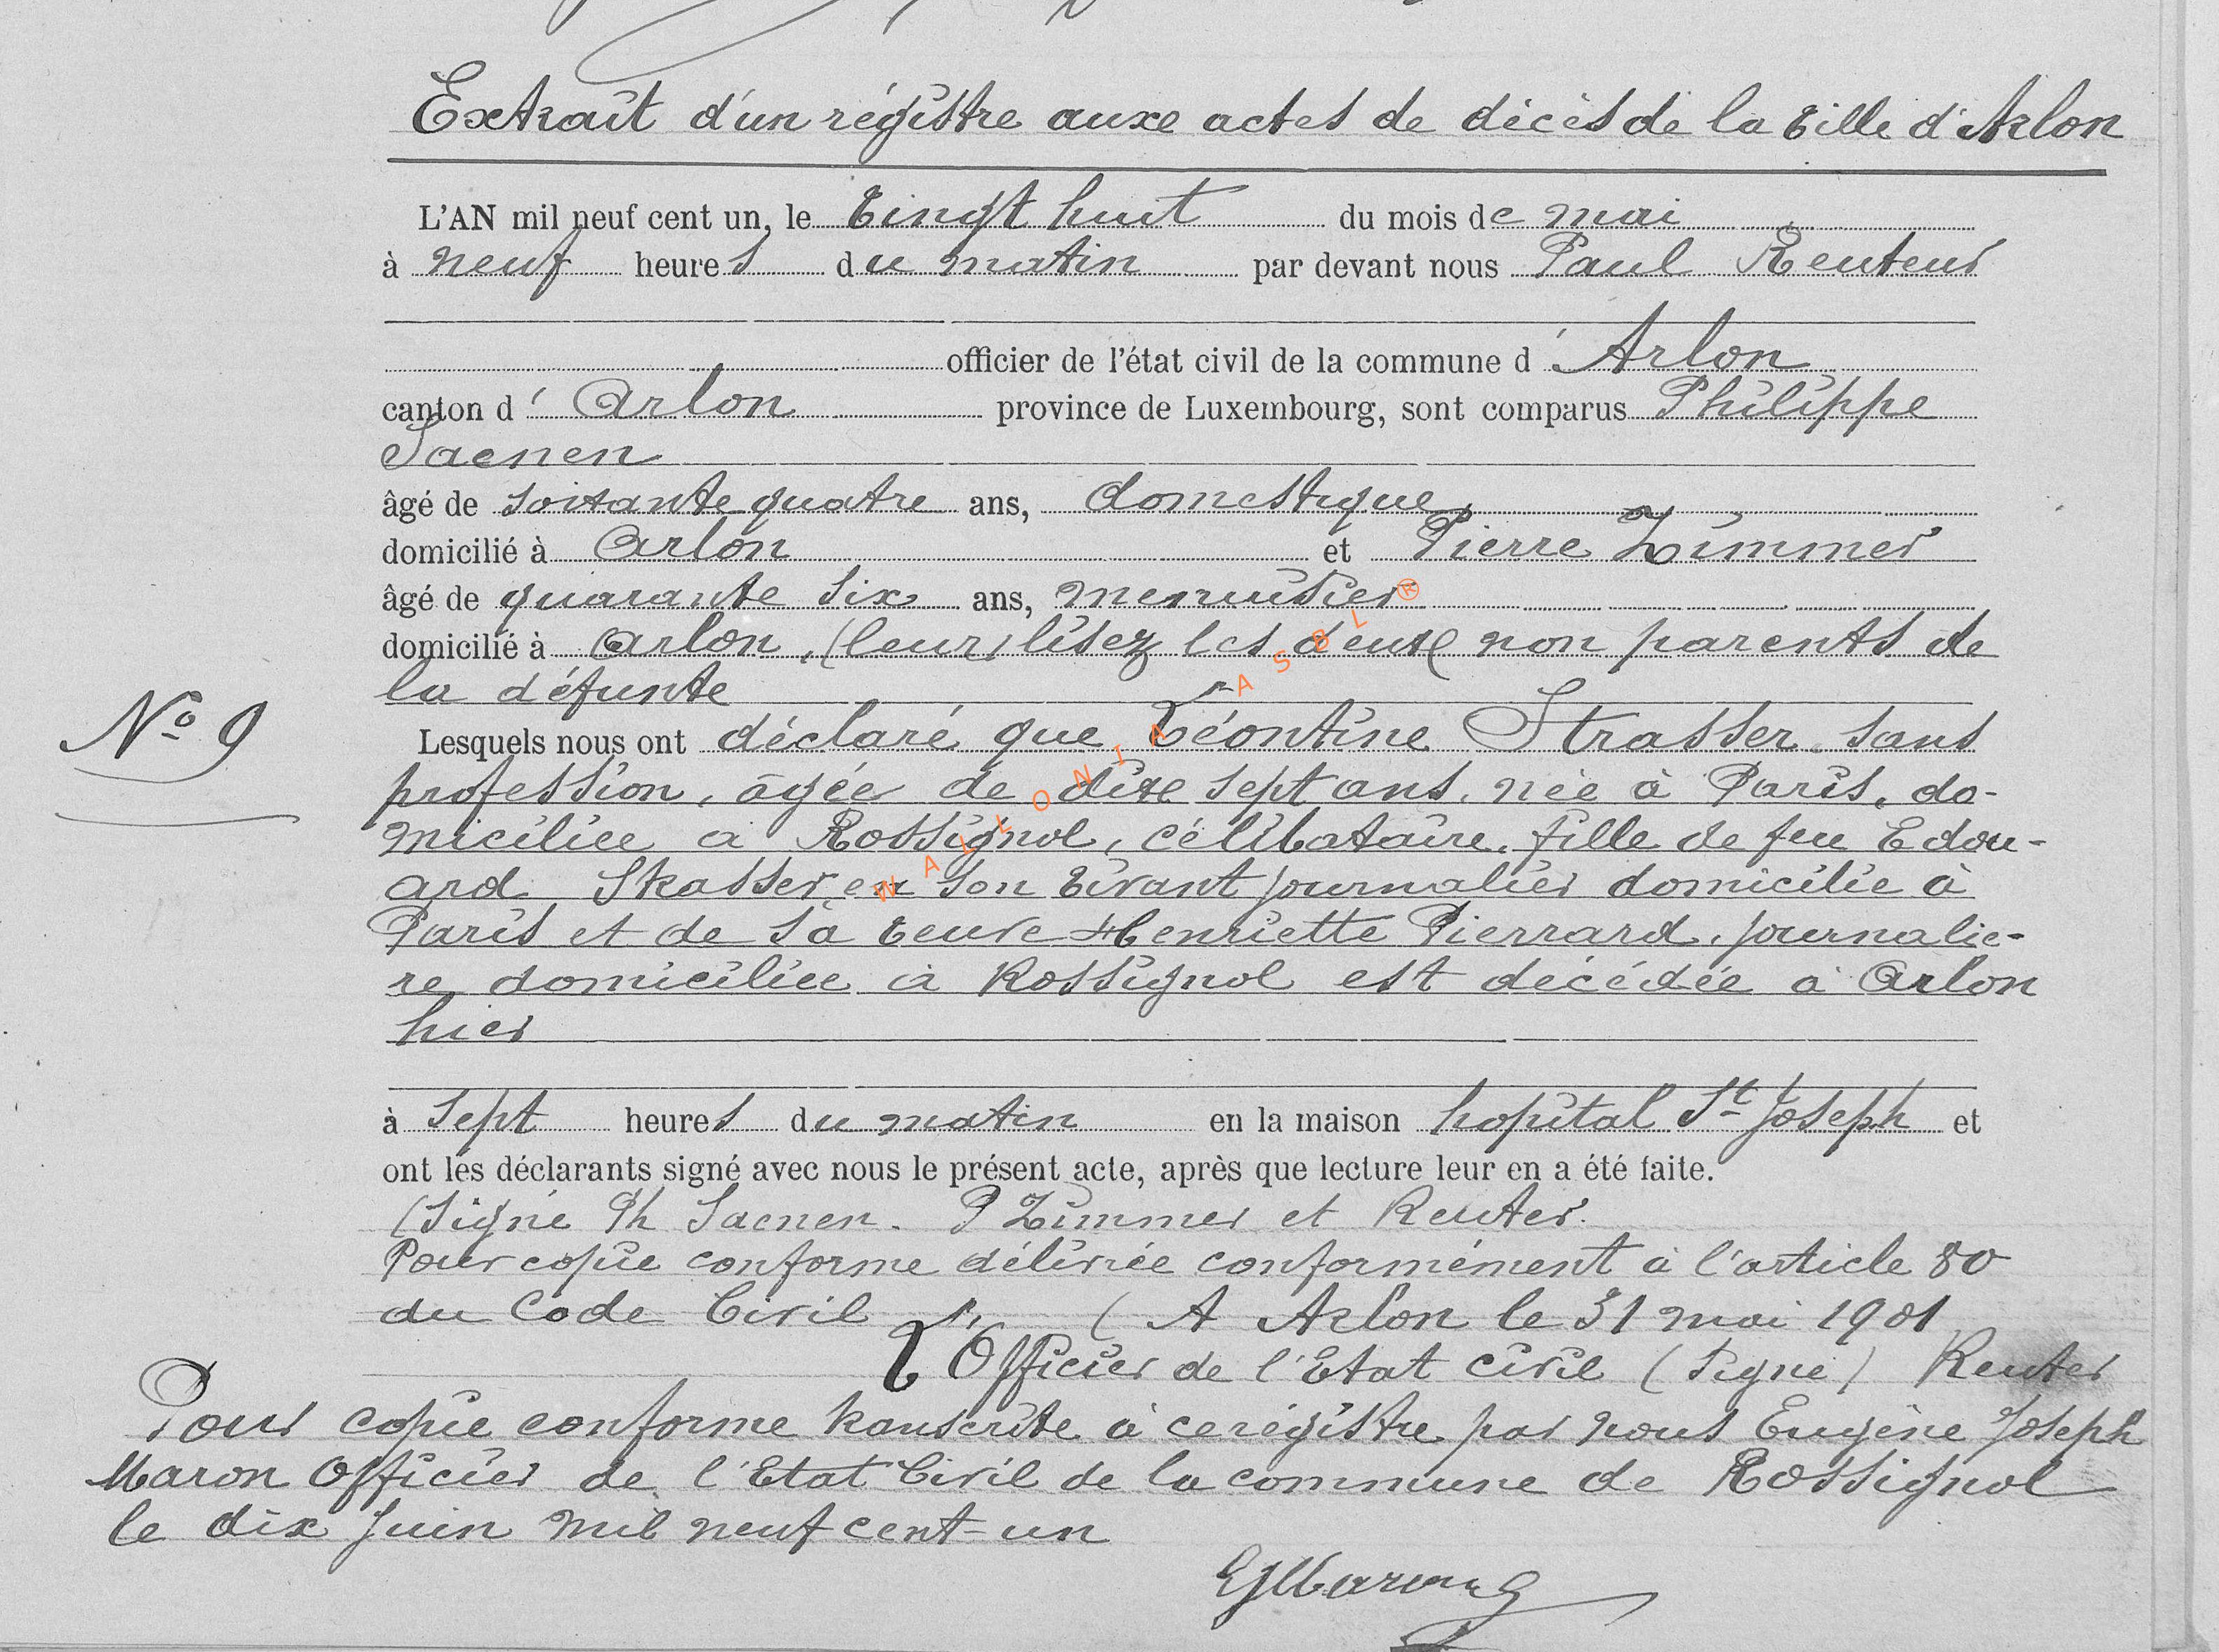 Extrait d'un régistre aux actes de décès de la Ville d'Arlon
L'AN mil neuf cent un, le Vingt huit du mois de mai
à neuf heures du matin par devant nous Paul Reuter
officier de l'état civil de la commune d'Arlon
canton d'Arlon province de Luxembourg, sont comparus Philippe
Saenen
âgé de soixante quatre ans, domestique,
domicilié à Arlon et Pierre Zimmer
âgé de quarante six ans, menuisier
domicilié à Arlon, (leur) lisez les deux non parents de
la défunte
Nº 9
Lesquels nous ont déclaré que Léontine Strasser sans
profession, âgée de dix sept ans, née à Paris, do-
miciliée à Rossignol, célibataire, fille de feu Edou-
ard Strasser en son vivant journalier domicilié à
Paris et de sa veuve Henriette Pierrard, journaliè-
re domiciliée à Rossignol est décédée à Arlon
hier
à sept heures du matin en la maison hopital St Joseph et
ont les déclarants signé avec nous le présent acte, après que lecture leur en a été faite.
(Signé Ph Saenen. P Zimmer et Reuter.
Pour copie conforme délivrée conformément à l'article 80
du Code Civil (A Arlon le 31 mai 1901
L'Officier de l'Etat civil (signé) Reuter
Pour copie conforme transcrite à ce régistre par nous Eugène Joseph
Maron Officier de l'Etat Civil de la commune de Rossignol
le dix juin mil neuf cent-un
EJMaron
WALLONIA ASBL ®